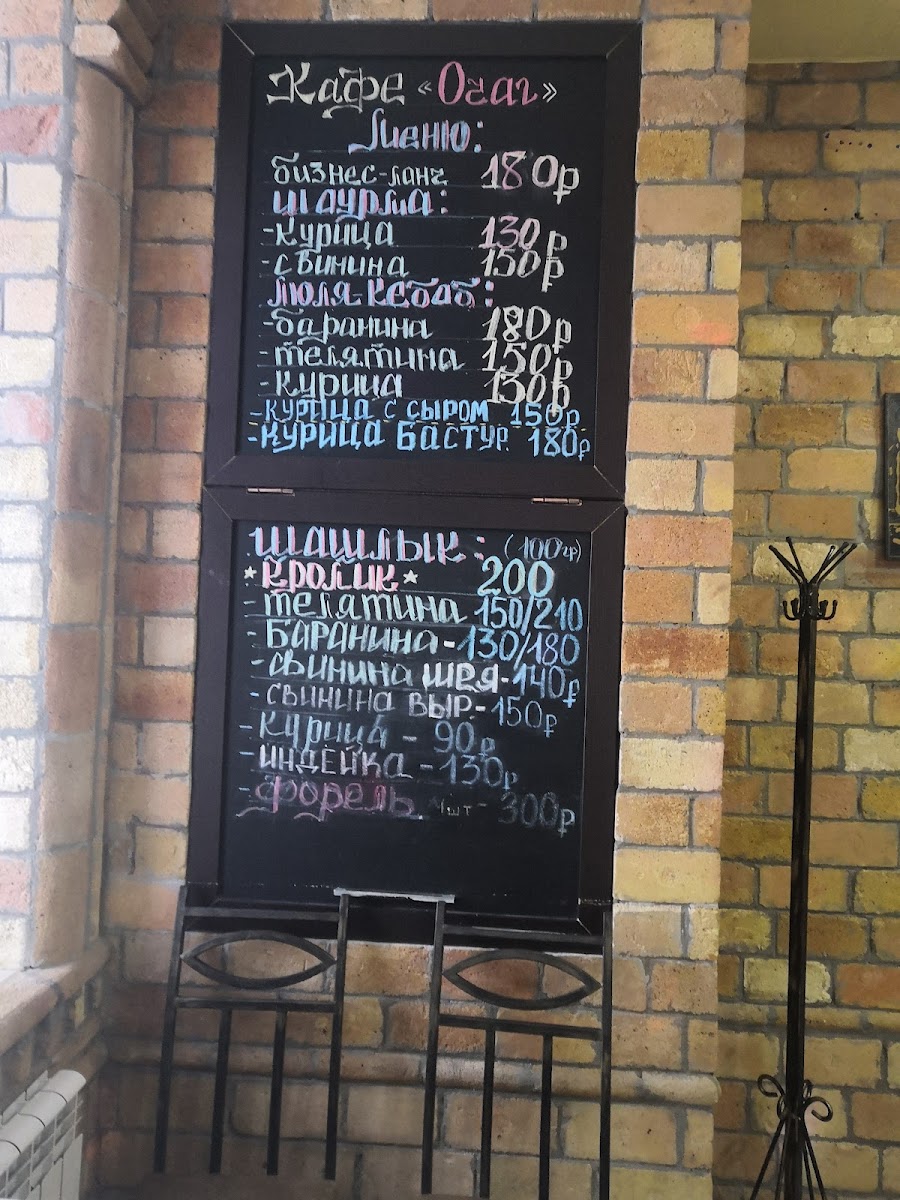 Кафе «Очаг»
Меню:
бизнес-ланч 180р
шаурма:
-курица 130р
-свинина 150р
люля-кебаб:
-баранина 180р
-телятина 150р
-курица 130р
-курица с сыром 150р.
-курица бастур. 180р
шашлык: (100гр)
*кролик* 200
-телятина 150/210
-баранина-130/180
-свинина шея-140р
-свинина выр.-150р
-курица - 90р
-индейка - 130р
-форель. *1шт - 300р